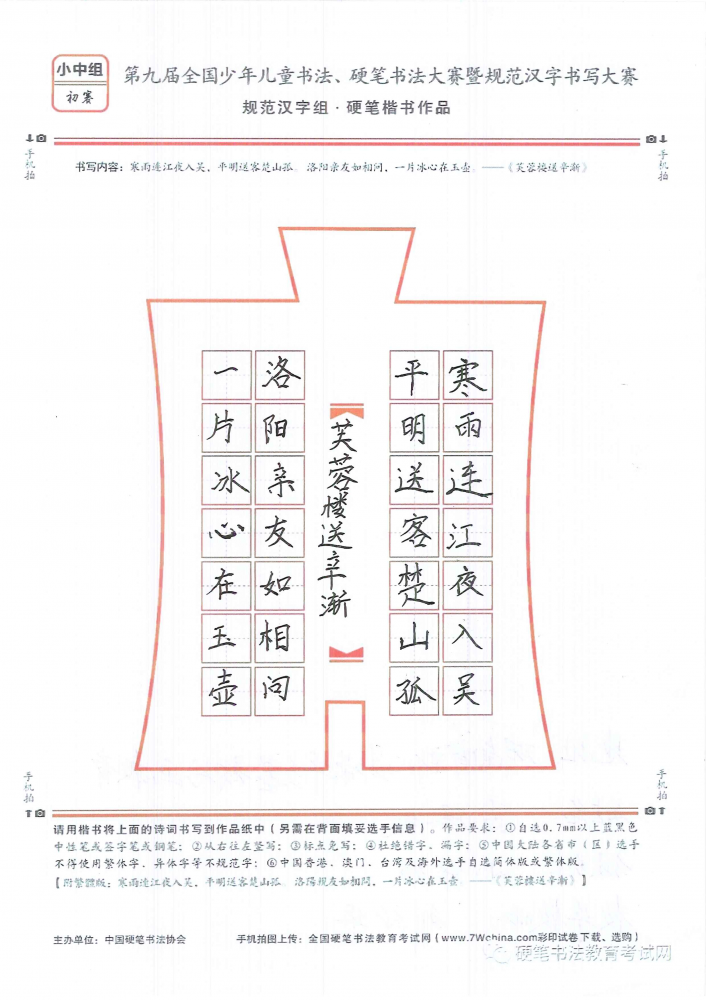 小中组
初赛
第九届全国少年儿童书法、硬笔书法大赛暨规范汉字书写大赛
规范汉字组·硬笔楷书作品
手机拍
手机拍
书写内容：寒雨连江夜入吴，平明送客楚山孤。洛阳亲友如相问，一片冰心在玉壶。——《芙蓉楼送辛渐》
寒雨连江夜入吴
平明送客楚山孤
芙蓉楼送辛渐
洛阳亲友如相问
一片冰心在玉壶
手机拍
手机拍
请用楷书将上面的诗词书写到作品纸中（另需在背面填妥选手信息）。作品要求：①自选0.7mm以上蓝黑色
中性笔或签字笔或钢笔；②从右往左竖写；③标点免写；④杜绝错字、漏字；⑤中国大陆各省市（区）选手
不得使用繁体字、异体字等不规范字；⑥中国香港、澳门、台湾及海外选手自选简体版或繁体版。
【附繁體版：寒雨連江夜入吴，平明送客楚山孤。洛陽親友如相問，一片冰心在玉壺。——《芙蓉樓送辛漸》】
主办单位：中国硬笔书法协会
手机拍图上传：全国硬笔书法教育考试网（www.7Wchina.com彩印试卷下载、选购）
硬笔书法教育考试网